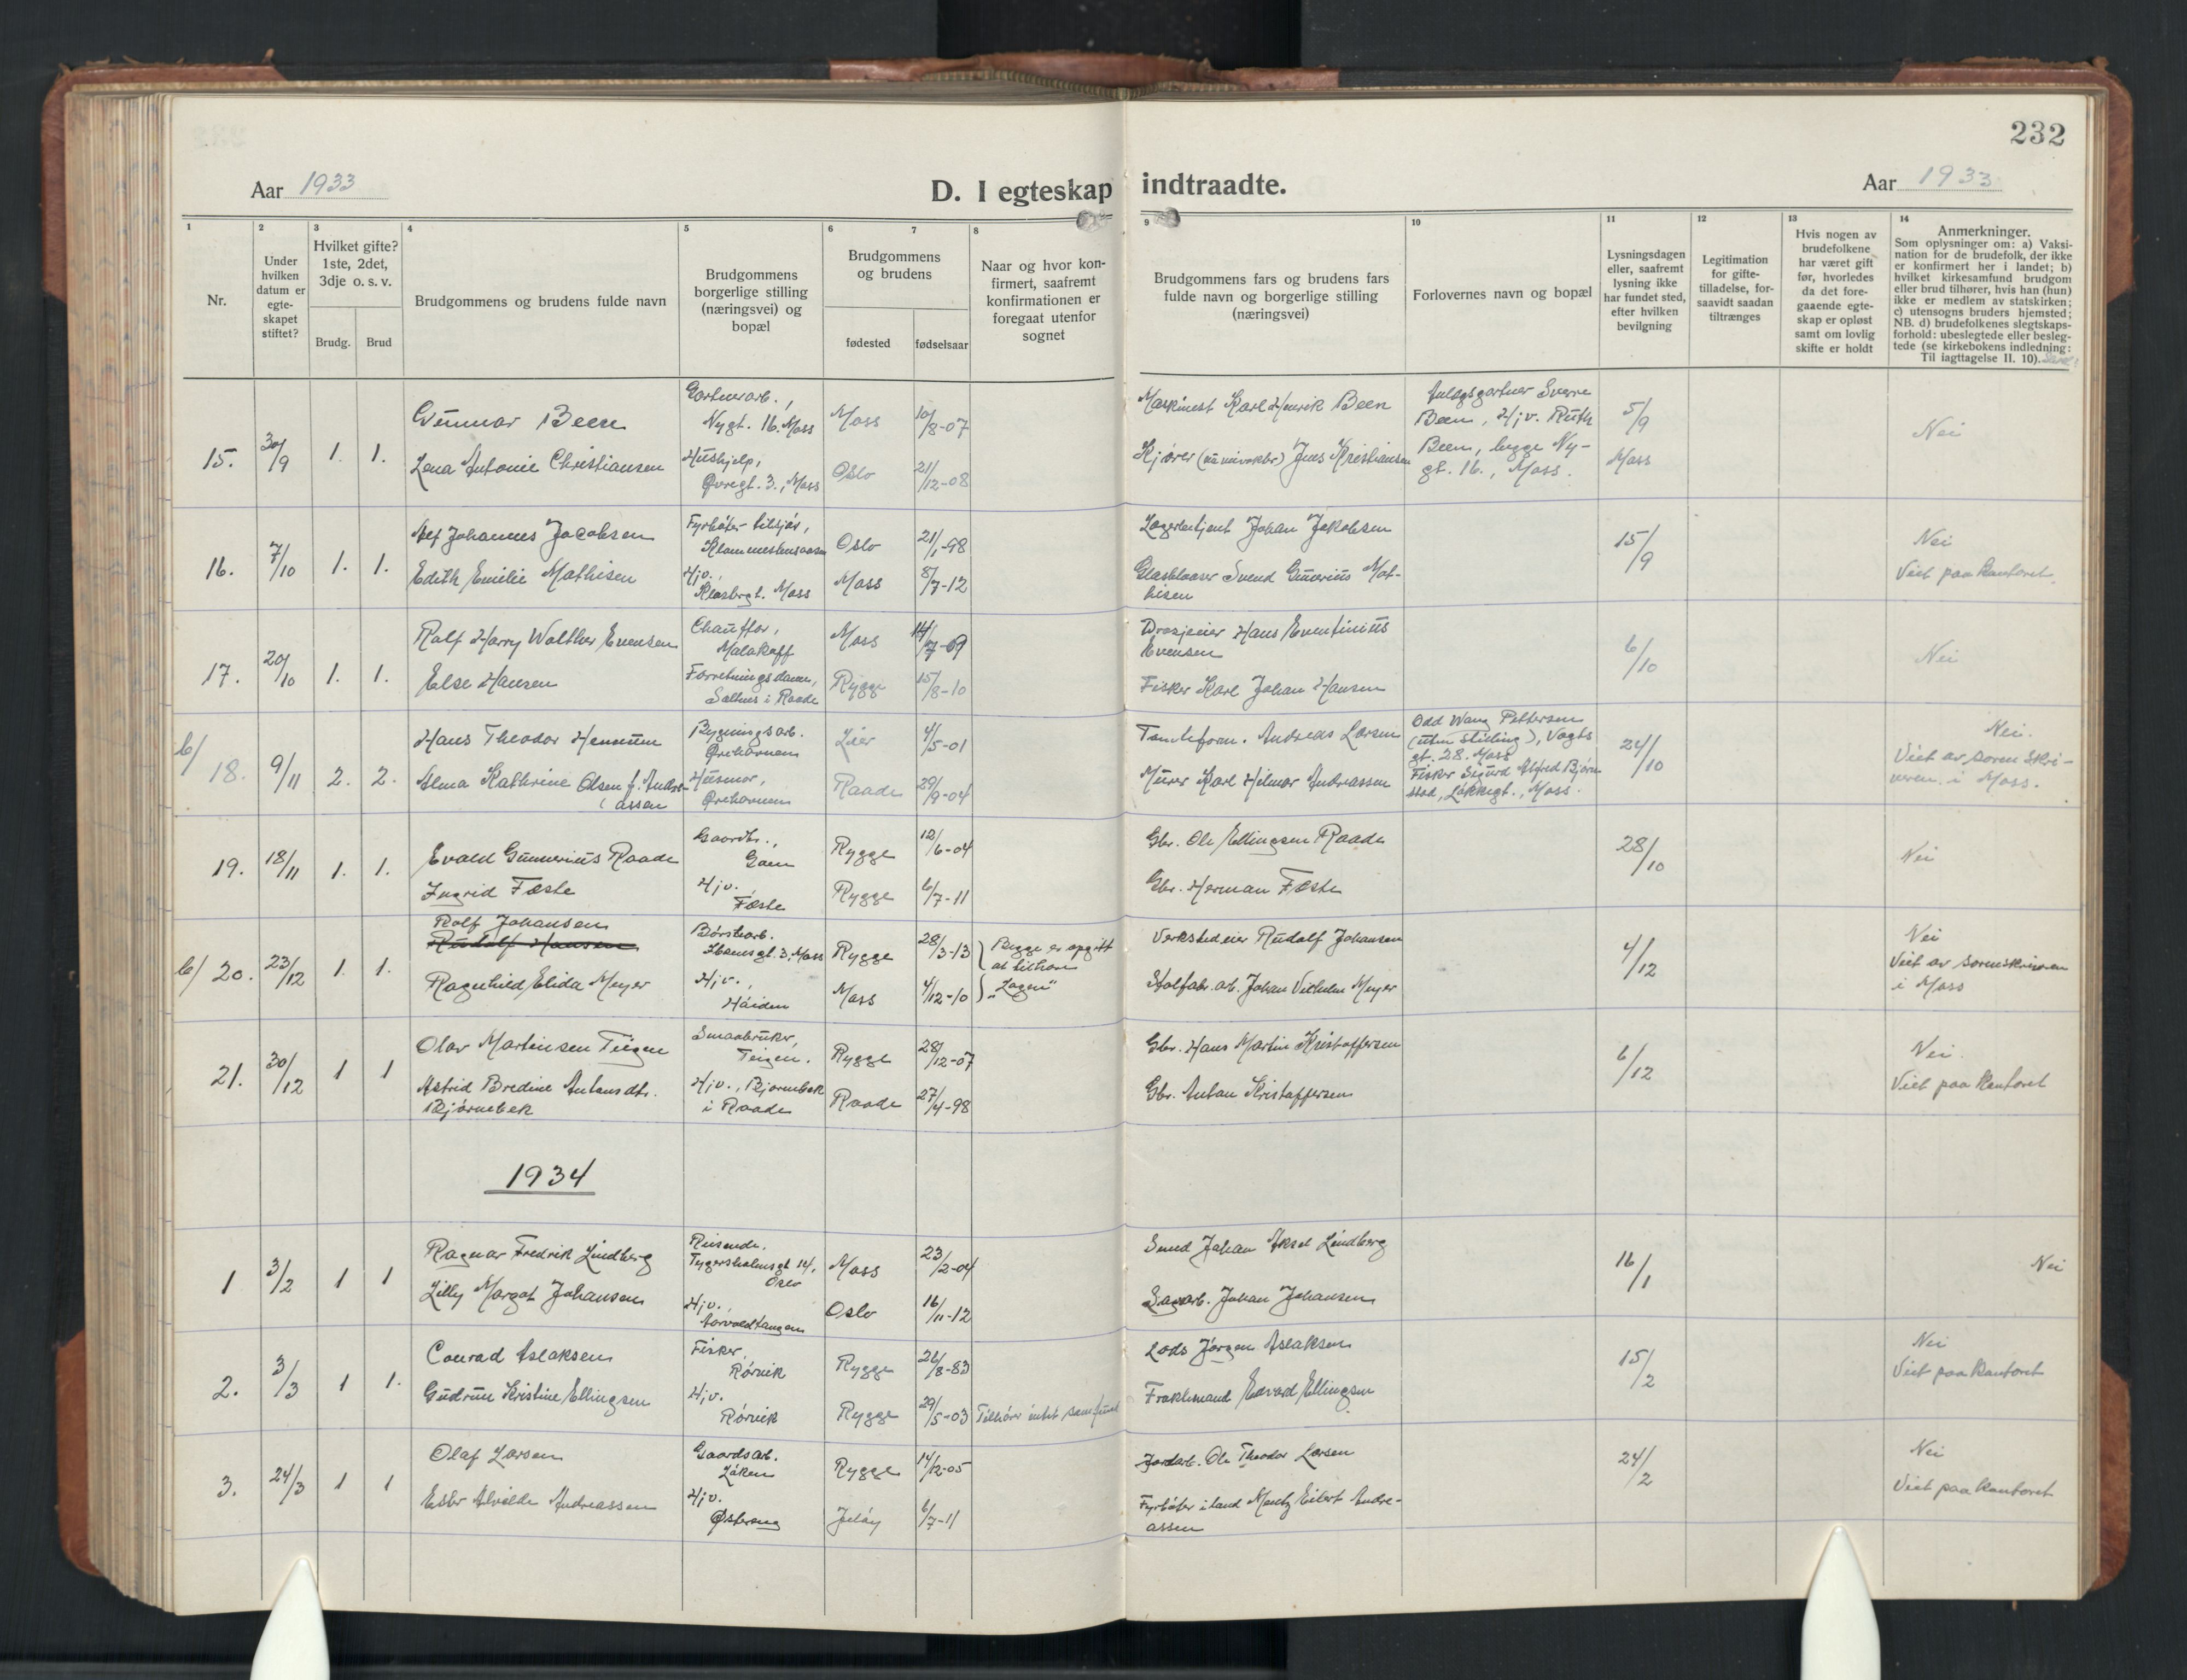 232
Aar 1933
D. I egteskap indtraadte.
Aar 1933
1
2
3
4
5
6
7
8
9
10
11
12
13
14
Nr.
Under
hvilken
datum er
egte-
skapet
stiftet?
Hvilket gifte?
1ste, 2det,
3dje o. s. v.
Brudg.
Brud
Brudgommens og brudens fulde navn
Brudgommens
borgerlige stilling
(næringsvei) og
bopæl
Brudgommens
og brudens
fødested
fødselsaar
Naar og hvor kon-
firmert, saafremt
konfirmationen er
foregaat utenfor
sognet
Brudgommens fars og brudens fars
fulde navn og borgerlige stilling
(næringsvei)
Forlovernes navn og bopæl
Lysningsdagen
eller, saafremt
lysning ikke
har fundet sted,
efter hvilken
bevilgning
Legitimation
for gifte-
tilladelse, for-
saavidt saadan
tiltrænges
Hvis nogen av
brudefolkene
har været gift
før, hvorledes
da det fore-
gaaende egte-
skap er opløst
samt om lovlig
skifte er holdt
Anmerkninger.
Som oplysninger om: a) Vaksi-
nation for de brudefolk, der ikke
er konfirmert her i landet; b)
hvilket kirkesamfund brudgom
eller brud tilhører, hvis han (hun)
ikke er medlem av statskirken;
c) utensogns bruders hjemsted;
NB. d) brudefolkenes slegtskaps-
forhold: ubeslegtede eller besleg-
tede (se kirkebokens indledning:
Til iagttagelse II. 10).
15. 30/9 1. 1.
Gunnar Been
Gartnerarb.,
Nygt. 16. Moss
Moss 10/8-07
Maskinist Karl Henrik Been
Lena Antonie Christiansen
Hushjelp,
Øvregt. 3., Moss
Oslo 21/12-08
Kjører Jens Kristiansen
Anlægsgartner Sverre
Been, Hjv. Ruth
Been, begge Ny-
gt. 16., Moss.
5/9
Moss
Nei
16. 7/10 1. 1.
Alf Johannes Jacobsen
Fyrbøter tilsjøs,
Oslo 21/1-98
Lagerbetjent Johan Jakobsen
Edith Emilie Mathisen
Hjv.,
Moss
Moss 8/7-12
Glasblaaser Svend Gunerius Mat-
hisen
15/9
Nei
Viet paa kantoret.
17. 20/10 1. 1.
Rolf Harry Walther Evensen
Chauffør,
Malakoff
Moss 14/7-09
Drosjeeier Hans Eventinius
Evensen
Else Hansen
Forretningsdame,
Saltnes i Raade
Rygge 15/8-10
Fisker Karl Johan Hansen
6/10
Nei
b/ 18. 9/11 2. 2.
Hans Theodor Hennum
Bygningsarb.
Ørehavnen
Lier 4/5-01
Tomteform. Andreas Larsen
Alma Kathrine Olsen f. Andre-
assen
Husmor,
Ørehavnen
Raade 29/9-04
Murer Karl Hilmar Andreassen
Odd Wang Pettersen
(uten stilling), Vogts
gt. 28. Moss
Fisker Sigurd Alfred Bjørn
stad, Løkkegt., Moss.
24/10
Nei.
Viet av sorenskri-
veren i Moss.
19. 18/11 1. 1.
Evald Gunnerius Raade
Gaardbr.,
Gaen
Rygge 12/6-04
Gbr. Ole Ellingsen Raade
Ingrid Fæste
Hjv.
Fæste
Rygge 6/7-11
Gbr. Herman Fæste
28/10
Nei
b/ 20. 23/12 1. 1.
Rolf Johansen
Rudolf Hansen
Børstearb.
Ibsensgt. 3, Moss
Rygge 28/3-13
Begge er opgitt
at tilhøre
"Logen"
Verkstedeier Rudolf Johansen
Ragnhild Elida Meyer
Hjv.,
Høiden
Moss 4/12-10
Stolfabr. arb. Johan Vilhelm Meyer
4/12
Nei
Viet av sorenskriveren
i Moss
21. 30/12 1 1
Olav Martinsen Teigen
Smaabruker,
Teigen.
Rygge 28/12-07
Gbr. Hans Martin Kristoffersen
Astrid Bredine Antonsdtr.
Bjørnebek
Hjv., Bjørnebek
i Raade
Raade 27/4-98
Gbr. Anton Kristoffersen
6/12
Nei.
Viet paa kantoret
1934
1 3/2 1 1
Ragnar Fredrik Lindberg
Reisende.
Oslo
Moss 23/2-04
Smed Johan Aksel Lindberg
Lilly Margot Johansen
Hjv.,
Oslo 16/11-12
Sagarb. Johan Johansen
16/1
Nei
2. 3/3 1 1.
Conrad Aslaksen
Fisker,
Rørvik
Rygge 26/8-83
Lods Jørgen Aslaksen
Gudrun Kristine Ellingsen
Hjv.
Rørvik
Rygge 29/5-03
Tilhører intet samfund
Fraktemand Edvard Ellingsen
15/2
Nei
Viet paa kantoret
3. 24/3 1 1
Olaf Larsen
Gaardsarb.
Løken
Rygge 14/12-05
Jordarb. Ole Theodor Larsen
Ester Alvilde Andreassen
Hjv.
Østereng
Jeløy 6/7-11
Fyrbøter iland Mentz Eilert Andre-
assen
24/2
Nei
Viet paa kantoret